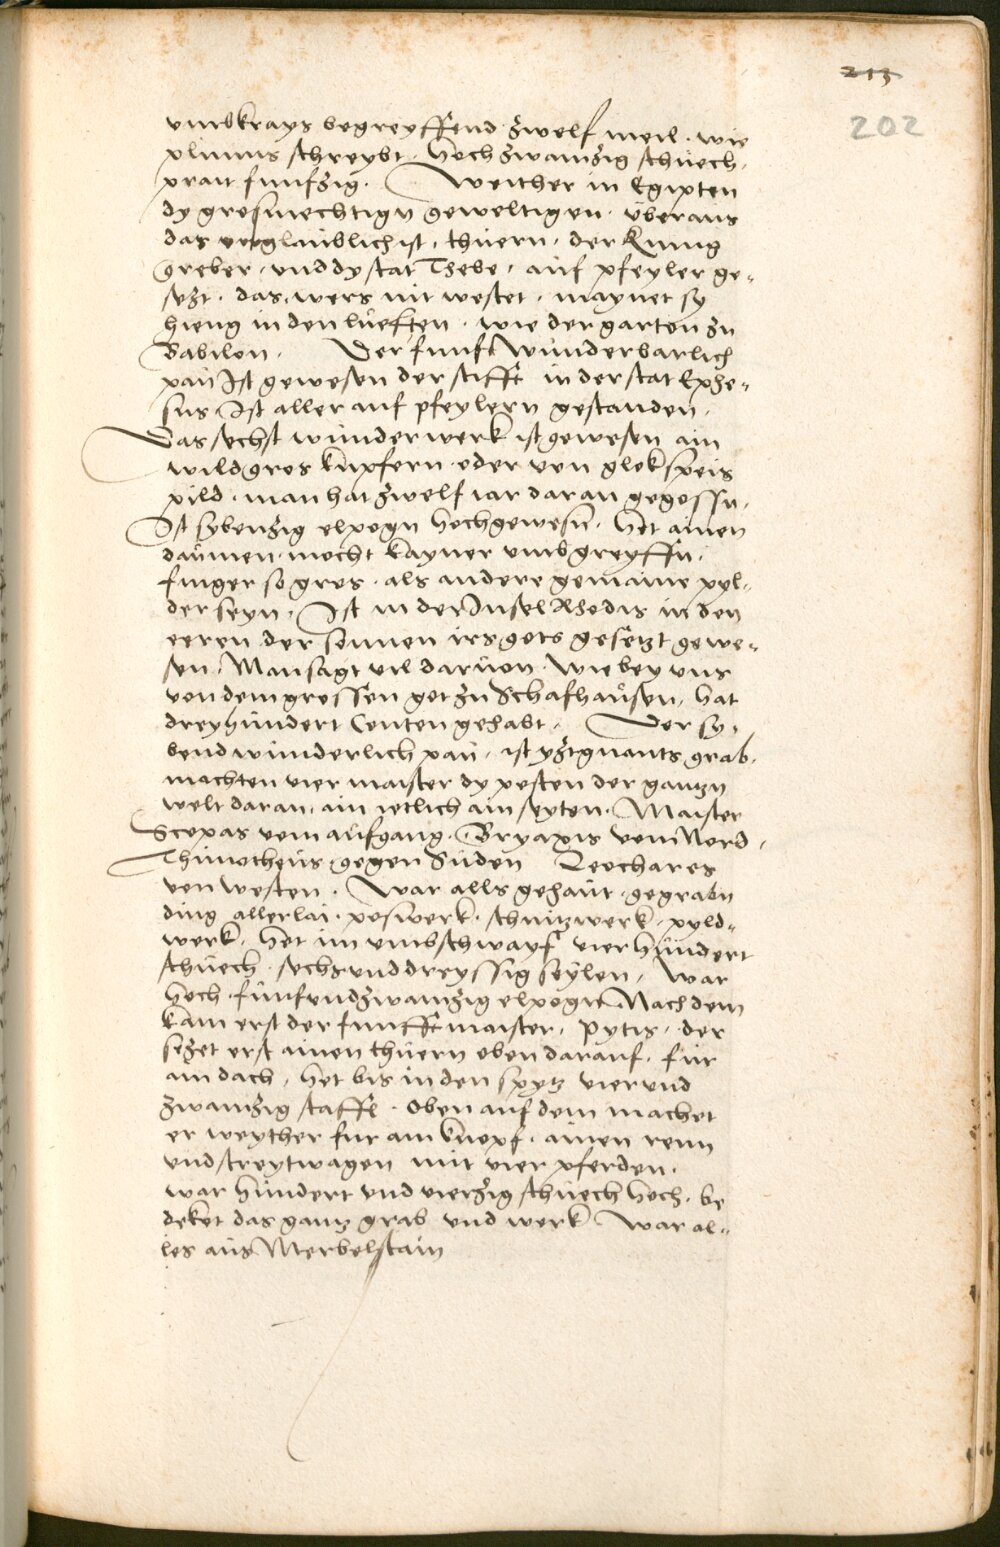 213
202
umbkrays begreyffend zwelf meil. wie
plinius schreybt. hoch zwainzig schuech.
prait funfzig. Weither in Egipten
dy grosmechtign geweltigen. überaus
das unglaublich ist, thüern, der Küing
greber, und dy stat Thebe, auf pfeyler ge-
sezt. das, wers nit westet, maynet sy
hieng in den lüeften. wie der garten zu
Babilon. Der funft wunderbarlich
paü Ist gewesen der stifft in der stat Ephe-
sus Ist aller auf pfeylern gestanden.
Das sechst wunderwerk ist gewesen ain
wild gros kupfern oder von glokspeis
pild. man hat zwelf iar daran gegossn.
Ist sybenzig elpogn hochgewesn. het ainen
daümen mocht kayner umbgreyffn.
finger so gros. als andere gemaine pyl-
der seyn. Ist in der Insel Rhodis in den
eeren der sonnen irs gots gesetzt gewe-
sen. Man sagt vil darüon. wie bey uns
von dem grossen got zu Schafhaüsen, hat
dreyhündert Centen gehabt. Der sy-
bend wunderlich paü, ist yztgnants grab.
machten vier maister dy pesten der gantzn
welt daran, ain ietlich ain seyten. Maister
Scopas vom aüfgang. Bryaxis vom Nord,
Thimotheüs gegen Süden Leochares
von westen. War alls gehaüt gegrabn
ding allerlai. poswerk. schnitzwerk. pyld-
werk. het im umbschwayf vierhündert
schüech. sechs und dreyssig seylen, war
hoch fünfundzwainzig elpogn Nachdem
kam erst der funfft maister, Pytis, der
sezet erst ainen thüern oben darauf. für
ain dach, het bis in den spytz vier und
zwainzig staffl. oben auf dem machet
er weyther fur ain knopf. ainen renn
und streytwagen mit vier pferden.
war hündert und vierzig schüech hoch. be
deket das gantz grab und werk war al-
les aüs Merbelstain